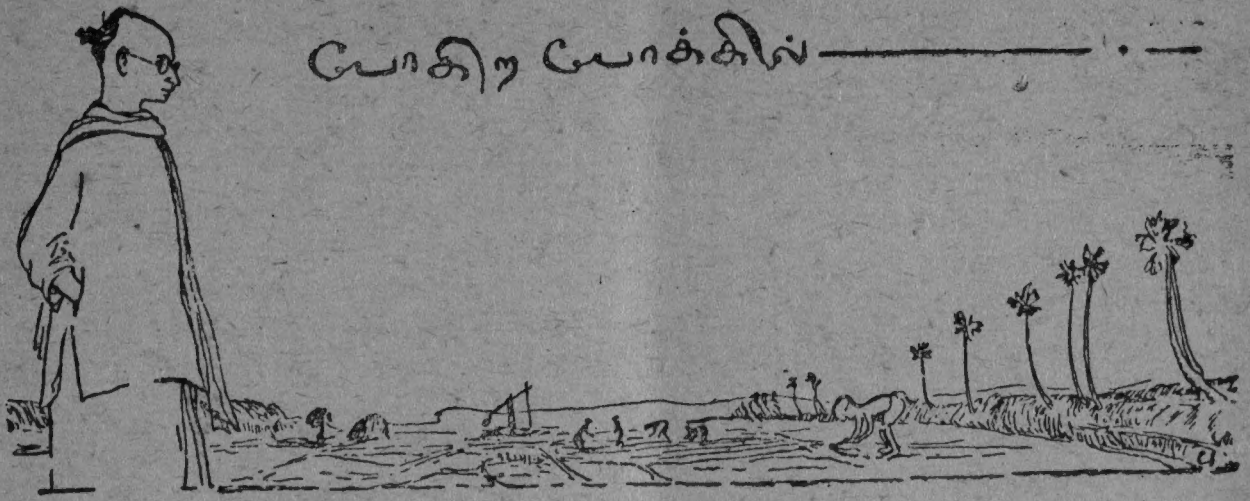 போகிற போக்கில்